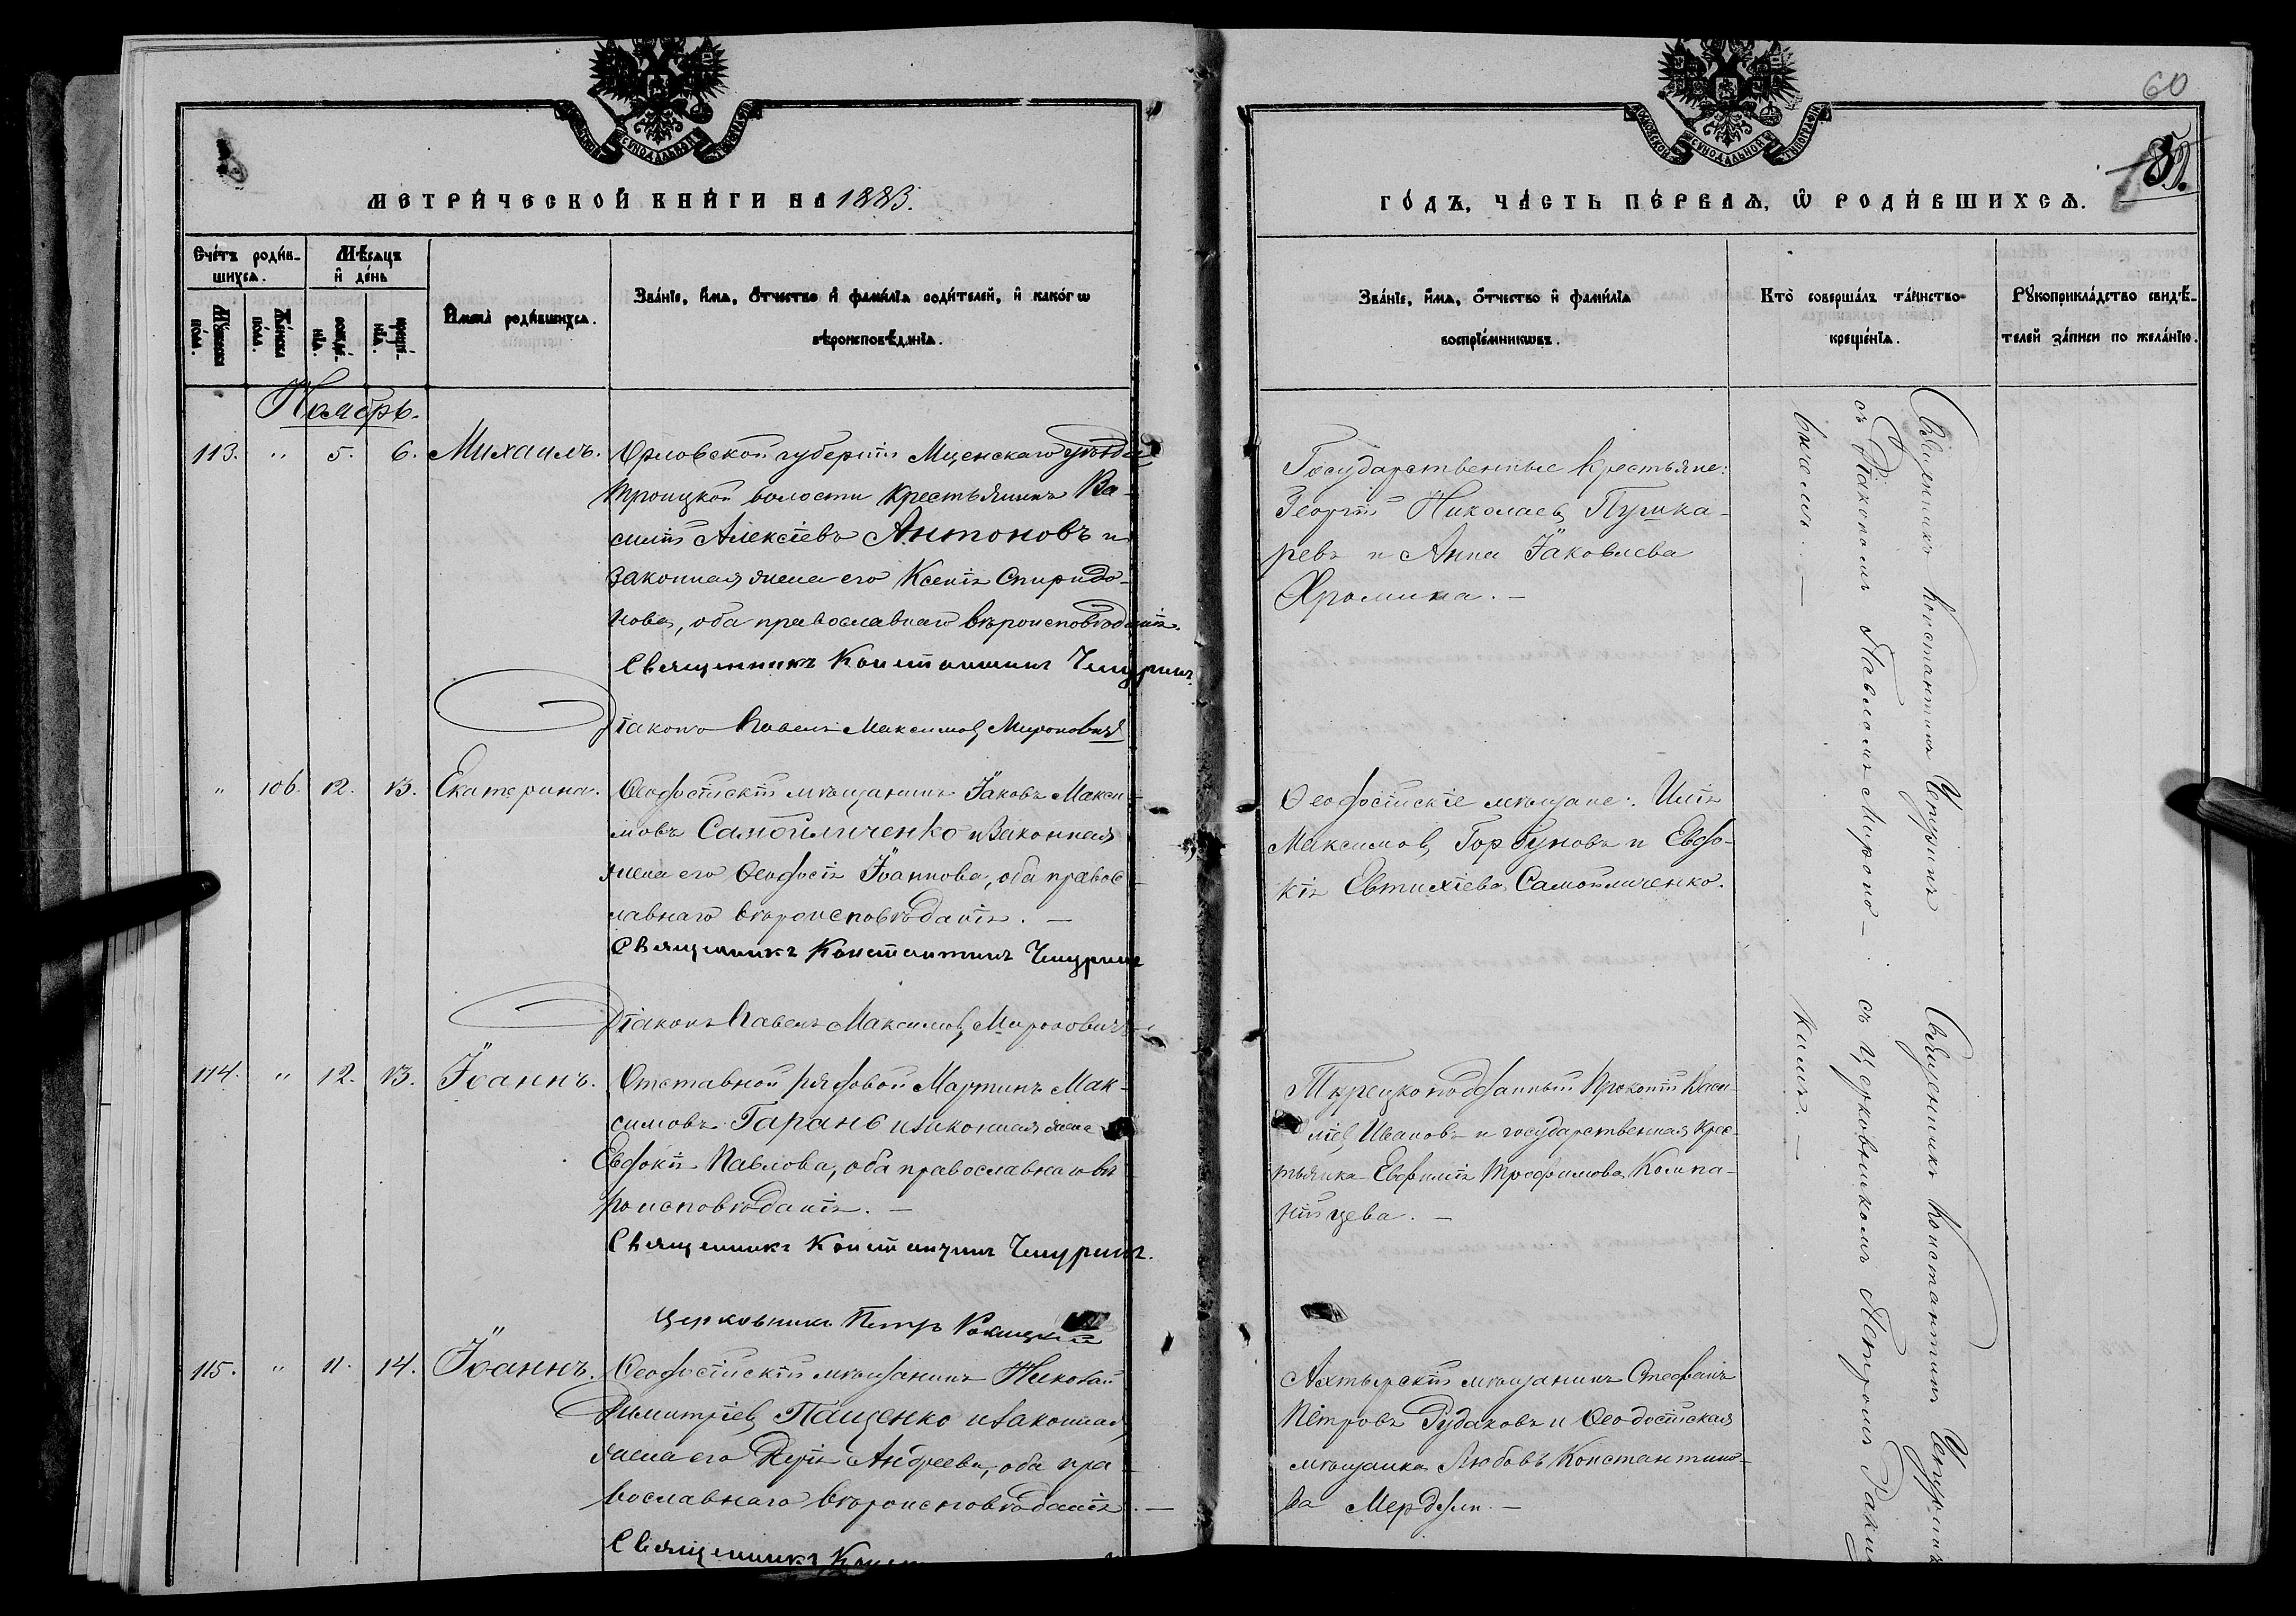 МЕТРИ́ЧЕСКОЙ КНИ́ГИ НА 1883.
Сче́тъ роди́в-
шихсѧ.
Мѣ́сѧцъ
и҆ де́нь
Му́жеска
по́ла.
Же́нска
по́ла.
рожде́-
нїѧ.
креще́-
нїѧ.
И҆мена̀ роди́вшихсѧ.
Зва́нїе, и҆́мѧ, ѻ҆́тчество и҆ фами́лїѧ роди́телей, и҆ какогѡ
вѣроисповѣ́данїѧ.
Ноябрь.
113. " 5. 6. Михаилъ.
Орловской губернiи Мценскаго уѣзда
Троицкой волости крестьянинъ Ва-
силiй Алексiевъ Антоновъ и
законная жена его Ксенiя Спиридо-
нова, оба православнаго вѣроисповѣданiя.
Священникъ Константинъ Чепуринъ.
Дiаконъ Павелъ Максимовъ Мироновичъ
" 106. 12. 13. Екатерина.
Ѳеодосiйскiй мѣщанинъ Iаковъ Макси-
мовъ Самойличенко и законная
жена его Ѳеодосiя Iоаннова, оба правос-
лавнаго вѣроисповѣданiя. —
Священникъ Константинъ Чепуринъ
Дiаконъ Павелъ Максимовъ Мироновичъ
114. " 12. 13. Iоаннъ.
Отставной рядовой Мартинъ Мак-
симовъ Гарань и законная жена
Евдокiя Павлова, оба православнаго вѣ-
роисповѣданiя. —
Священникъ Константинъ Чепуринъ.
Церковникъ Петръ Ракицкiй
115. " 11. 14. Iоаннъ.
Ѳеодосiйскiй мѣщанинъ Николай
Димитрiевъ Пащенко и законная
жена его Андреева, оба пра-
вославнаго вѣроисповѣданiя. —
Священникъ
60
ГО́ДЪ, ЧА́СТЬ ПЕ́РВАѦ, Ѡ҆ РОДИ́ВШИХСѦ.
Зва́нїе, и҆́мѧ, ѻ҆́тчество и҆ фами́лїѧ
воспрїе́мникѡвъ.
Кто̀ соверша́лъ та́инство
креще́нїѧ.
Рꙋкоприкла́дство свидѣ́-
телей за́писи по жела́нїю.
Государственные крестьяне:
Георгiй Николаевъ Пушка-
ревъ и Анна Iаковлева
Хромина. —
Священникъ Константинъ Чепуринъ
съ Дiакономъ Павломъ Мироно-
вичемъ. —
Ѳеодосiйскiе мѣщане: Илiя
Максимовъ Горбуновъ и Евдо-
кiя Евтихiева Самойличенко.
Турецкоподданный Прокопiй Васи-
лiевъ Ивановъ и государственная крес-
тьянка Евфимiя Трофимова Компа-
нiйцева. —
Священникъ Константинъ Чепуринъ
съ Церковникомъ Петромъ Ракиц-
кимъ. —
Ахтырскiй мѣщанинъ Стефанъ
Петровъ Рудаковъ и Ѳеодосiйская
мѣщанка Любовь Константино-
ва